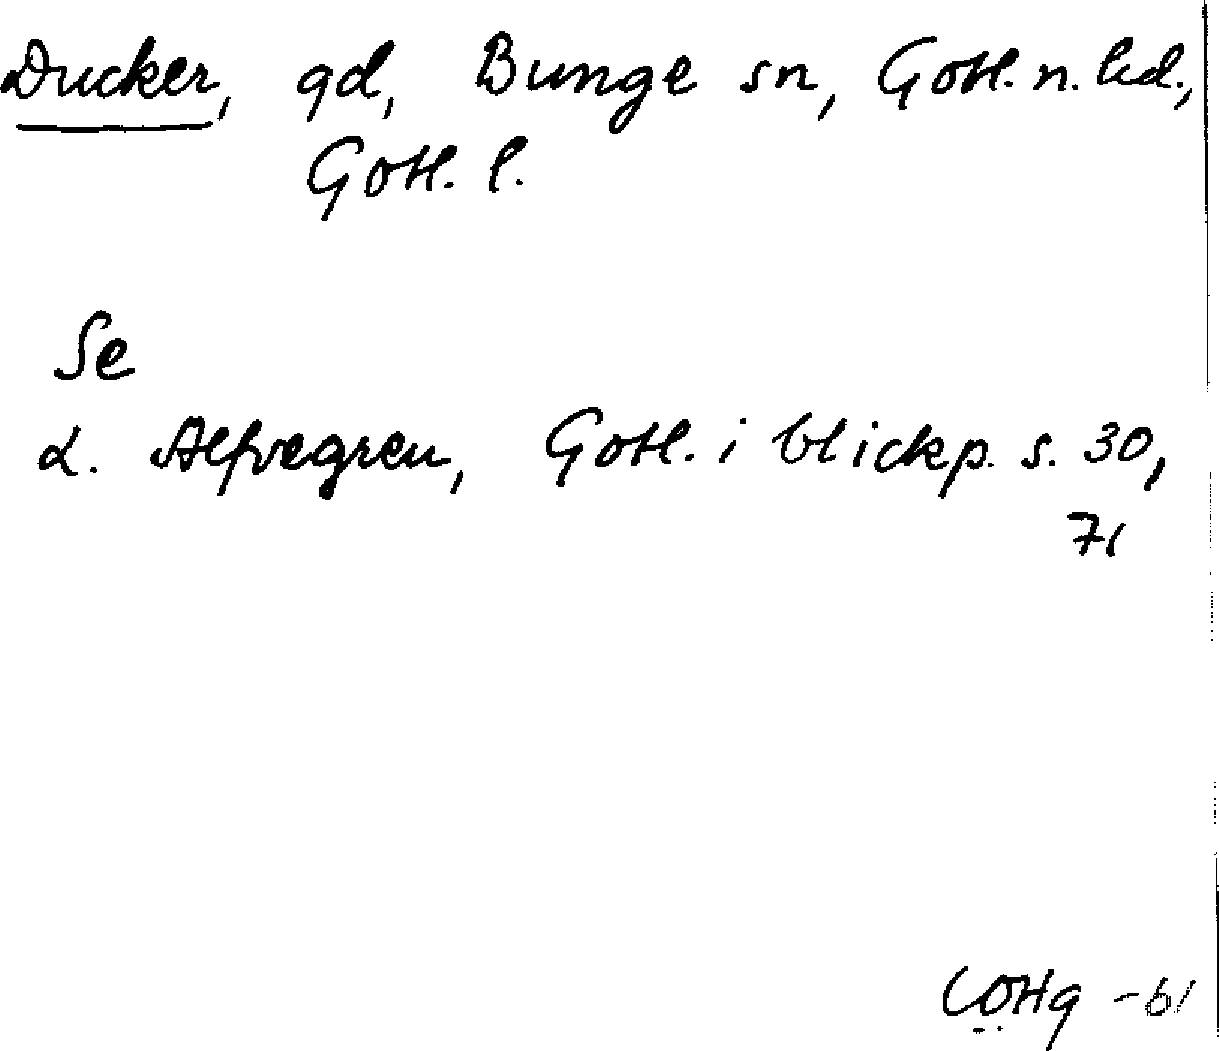 Ducker, gd, Bunge sn, Gotl. n. hd.,
Gotl. l.
Se
L. Alfvegren, Gotl. i blickp. s. 30,
71
-61